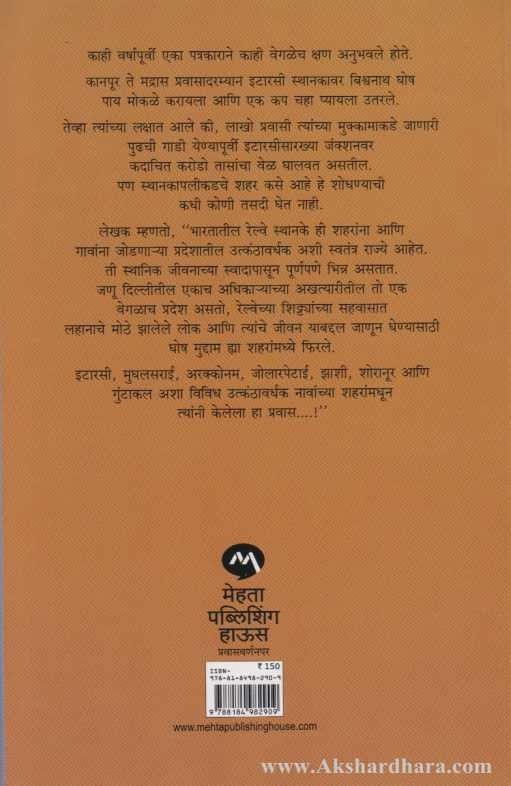 काही वर्षांपूर्वी एका पत्रकाराने काही वेगळेच क्षण अनुभवले होते.
कानपूर ते मद्रास प्रवासादरम्यान इटारसी स्थानकावर बिश्वनाथ घोष
पाय मोकळे करायला आणि एक कप चहा प्यायला उतरले.
तेव्हा त्यांच्या लक्षात आले की, लाखो प्रवासी त्यांच्या मुक्कामाकडे जाणारी
पुढची गाडी येण्यापूर्वी इटारसीसारख्या जंक्शनवर
कदाचित करोडो तासांचा वेळ घालवत असतील.
पण स्थानकापलीकडचे शहर कसे आहे हे शोधण्याची
कधी कोणी तसदी घेत नाही.
लेखक म्हणतो, ‘‘भारतातील रेल्वे स्थानके ही शहरांना आणि
गावांना जोडणाऱ्या प्रदेशातील उत्कंठावर्धक अशी स्वतंत्र राज्ये आहेत.
ती स्थानिक जीवनाच्या स्वादापासून पूर्णपणे भिन्न असतात.
जणू दिल्लीतील एकाच अधिकाऱ्याच्या अखत्यारीतील तो एक
वेगळाच प्रदेश असतो, रेल्वेच्या शिट्ट्यांच्या सहवासात
लहानाचे मोठे झालेले लोक आणि त्यांचे जीवन याबद्दल जाणून घेण्यासाठी
घोष मुद्दाम ह्या शहरांमध्ये फिरले.
इटारसी, मुघलसराई, अरक्कोनम, जोलारपेटाई, झाशी, शोरानूर आणि
गुंटाकल अशा विविध उत्कंठावर्धक नावांच्या शहरांमधून
त्यांनी केलेला हा प्रवास....!’’
मेहता
पब्लिशिंग
हाऊस
प्रवासवर्णनपर
₹ 150
ISBN-
978-81-8498-290-9
9 788184 982909
www.mehtapublishinghouse.com
www.Akshardhara.com